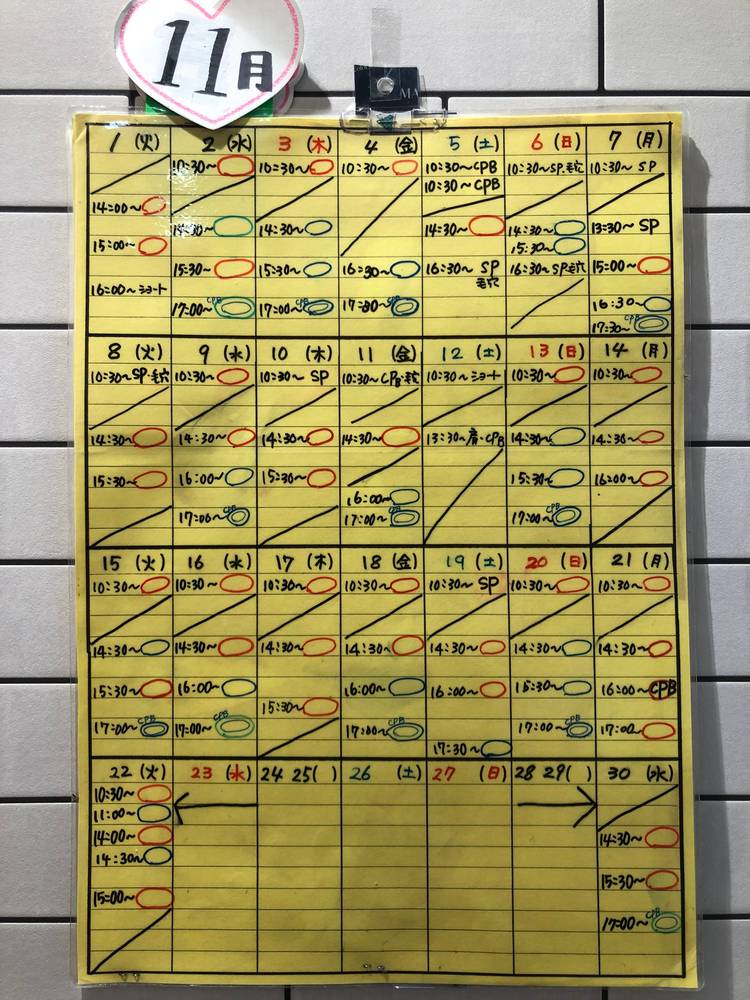 11月
MA
1 (火)
14:00~
15:00~
16:00~ショート
2 (水)
10:30~
14:30~
15:30~
17:00~ CPB
3 (木)
10:30~
14:30~
15:30~
17:00~ CPB
4 (金)
10:30~
16:30~
17:30~ CPB
5 (土)
10:30~CPB
10:30~CPB
14:30~
16:30~ SP
毛穴
6 (日)
10:30~SP・毛穴
14:30~
15:30~
16:30~SP毛穴
7 (月)
10:30~ SP
13:30~ SP
15:00~
16:30~
17:30~ CPB
8 (火)
10:30~SP・毛穴
14:30~
15:30~
9 (水)
10:30~
14:30~
16:00~
17:00~ CPB
10 (木)
10:30~ SP
14:30~
15:30~
11 (金)
10:30~CPB・毛穴
14:30~
16:00~
17:00~ CPB
12 (土)
10:30~ショート
13:30~肩・CPB
13 (日)
10:30~
14:30~
15:30~
17:00~ CPB
14 (月)
10:30~
14:30~
16:00~
15 (火)
10:30~
14:30~
15:30~
17:00~ CPB
16 (水)
10:30~
14:30~
16:00~
17:00~ CPB
17 (木)
10:30~
14:30~
15:30~
18 (金)
10:30~
14:30~
16:00~
17:00~ CPB
19 (土)
10:30~ SP
14:30~
16:00~
17:30~
20 (日)
10:30~
14:30~
15:30~
17:00~ CPB
21 (月)
10:30~
14:30~
16:00~CPB
17:00~
22 (火)
10:30~
11:00~
14:00~
14:30~
15:00~
23 (水)
24 25( )
26 (土)
27 (日)
28 29( )
30 (水)
14:30~
15:30~
17:00~ CPB